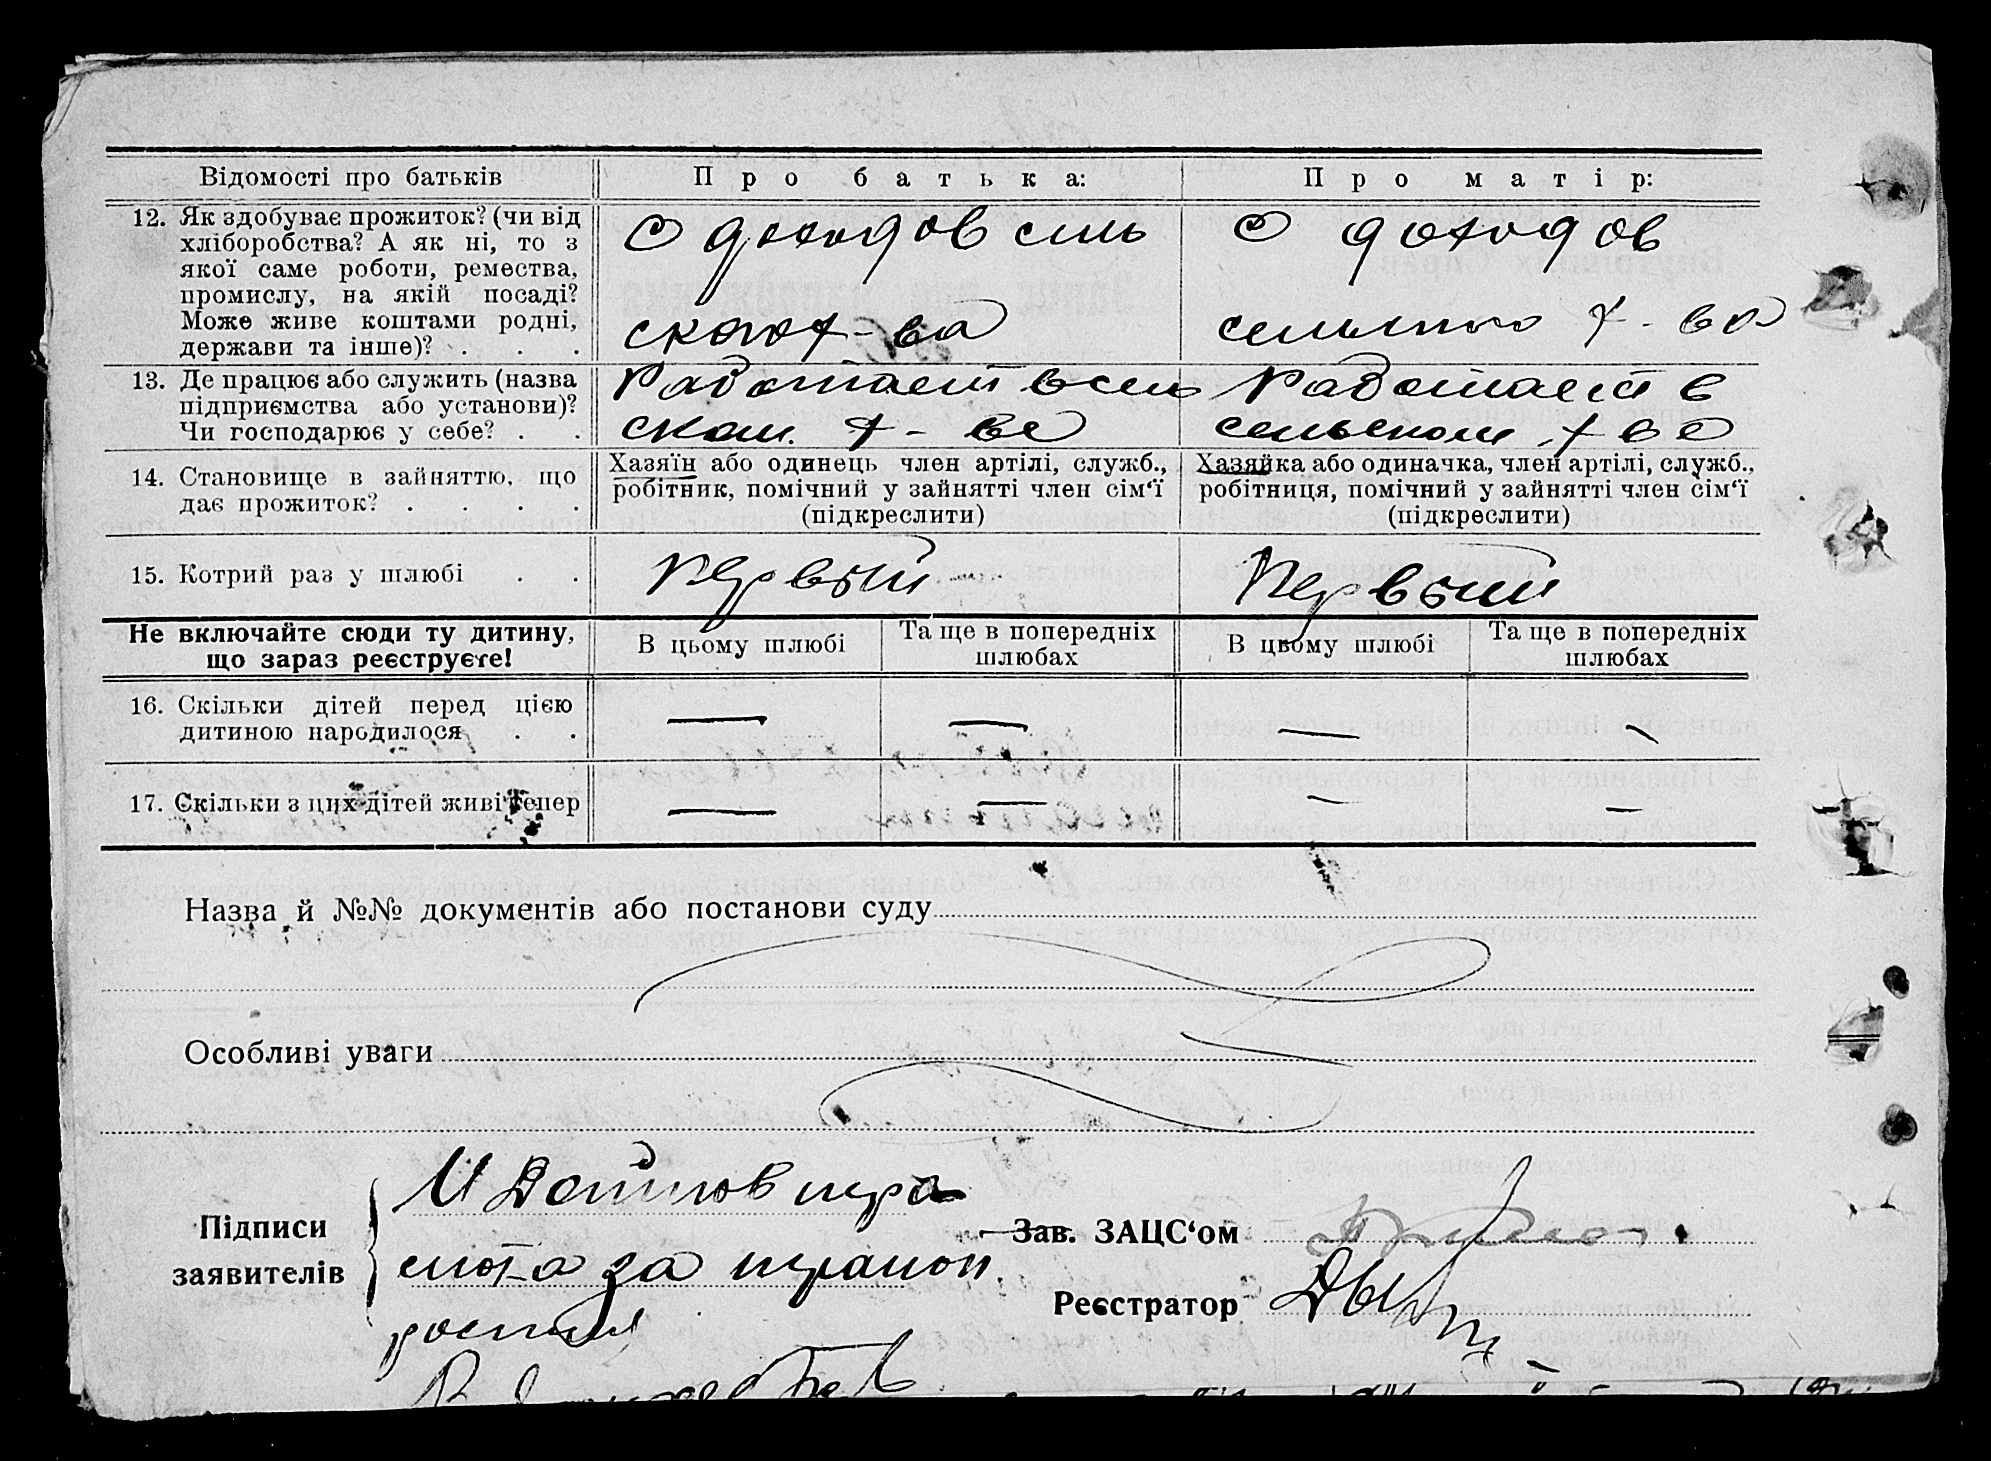 Відомості про батьків
Про батька:
Про матір:
12. Як здобуває прожиток? (чи від
хліборобства? А як ні, то з
якої саме роботи, ремества,
промислу, на якій посаді?
Може живе коштами родні,
держави та інше)? . . .
С доходов сель
ског х-ва
С доходов
сельского х-ва
13. Де працює або служить (назва
підприємства або установи)?
Чи господарює у себе? . .
Работает в сель
ском х-ве
Работает в
сельском х-ве
14. Становище в зайняттю, що
дає прожиток? . . . .
Хазяїн або одинець член артілі, служб.,
робітник, помічний у зайнятті член сім'ї
(підкреслити)
Хазяйка або одиначка, член артілі, служб.,
робітниця, помічний у зайнятті член сім'ї
(підкреслити)
15. Котрий раз у шлюбі . .
Первый
Первый
Не включайте сюди ту дитину,
що зараз реєструєте!
В цьому шлюбі
Та ще в попередніх
шлюбах
В цьому шлюбі
Та ще в попередніх
шлюбах
16. Скільки дітей перед цією
дитиною народилося . .
— — — —
17. Скільки з цих дітей живі тепер
— — — —
Назва й №№ документів або постанови суду
Особливі уваги
Підписи
заявителів
за
Зав. ЗАЦС'ом
Реєстратор